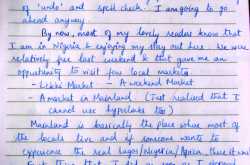 of 'undo' and spell check. I am going to go
ahead anyway.
By now, most of my lovely readers know that
I am in Nigeria & enjoying my stay out here. We were
relatively free last weekend & that gave me an
opportunity to visit few local markets
- Lekki Market - A weekend Market
- A market in Mainland (Just realised that I
cannot use hyperlinks too)
Mainland is basically the place where most of
the locals live and if someone wants to
experience the real Lagos/Nigeria/Africa, then it